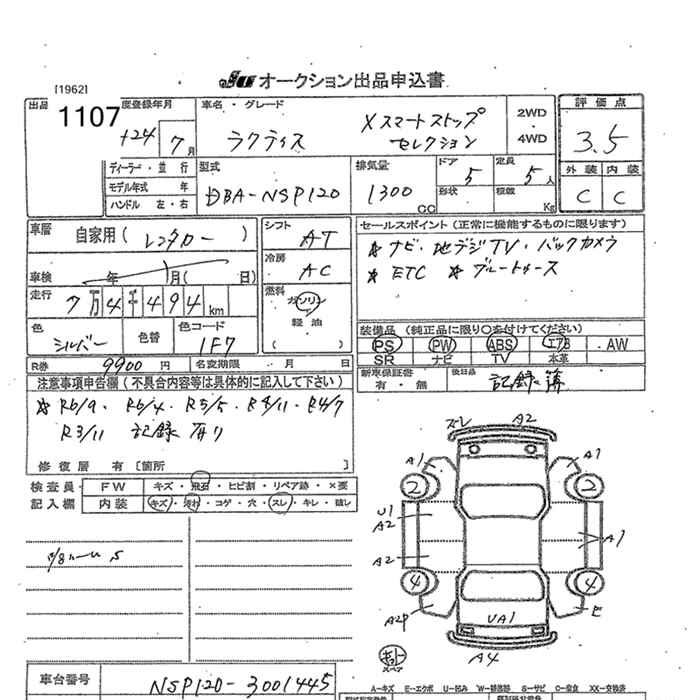 JU オークション出品申込書
[1962]
出品 1107 度登録年月 H24 年 7月
車名・グレード ラクティス Xスマートストップ セレクション
2WD
4WD
評価点 3.5
外装 内装
C C
ディーラー・並行
モデル年式 年
ハンドル 左・右
型式 DBA-NSP120
排気量 1300 CC
ドア 5
定員 5人
形状
積載 Kg
車歴 自家用(レンタカー)
車検 年 月( 日)
走行 7万4千494km
色 シルバー
色替
色コード 1F7
シフト AT
冷房 AC
燃料 ガソリン・軽油
( )
セールスポイント(正常に機能するものに限ります)
☆ナビ・地デジTV・バックカメラ
☆ETC ☆ブルートゥース
装備品(純正品に限り○を付けてください)
PS PW ABS エアB AW
SR ナビ TV 本革
R券 9900円
名変期限 月 日
新車保証書 有・無
後日品 記録簿
注意事項申告欄(不具合内容等は具体的に記入して下さい)
☆R6/9・R6/4・R5/5・R4/11・R4/7
R3/11 記録有り
修復歴 有〔箇所 〕
検査員 FW キズ・飛石・ヒビ割・リペア跡・×要
記入欄 内装 キズ・汚れ・コゲ・穴・スレ・キレ・破し
ズレ A2
A1 A1
2 2
U1
A2
A1
A2
4 4
A2P E
UA1
A4
スペア
車台番号 NSP120-3001445
A―キズ E―エクボ U―凹み W―補修跡 S―サビ C―腐食 XX―交換済